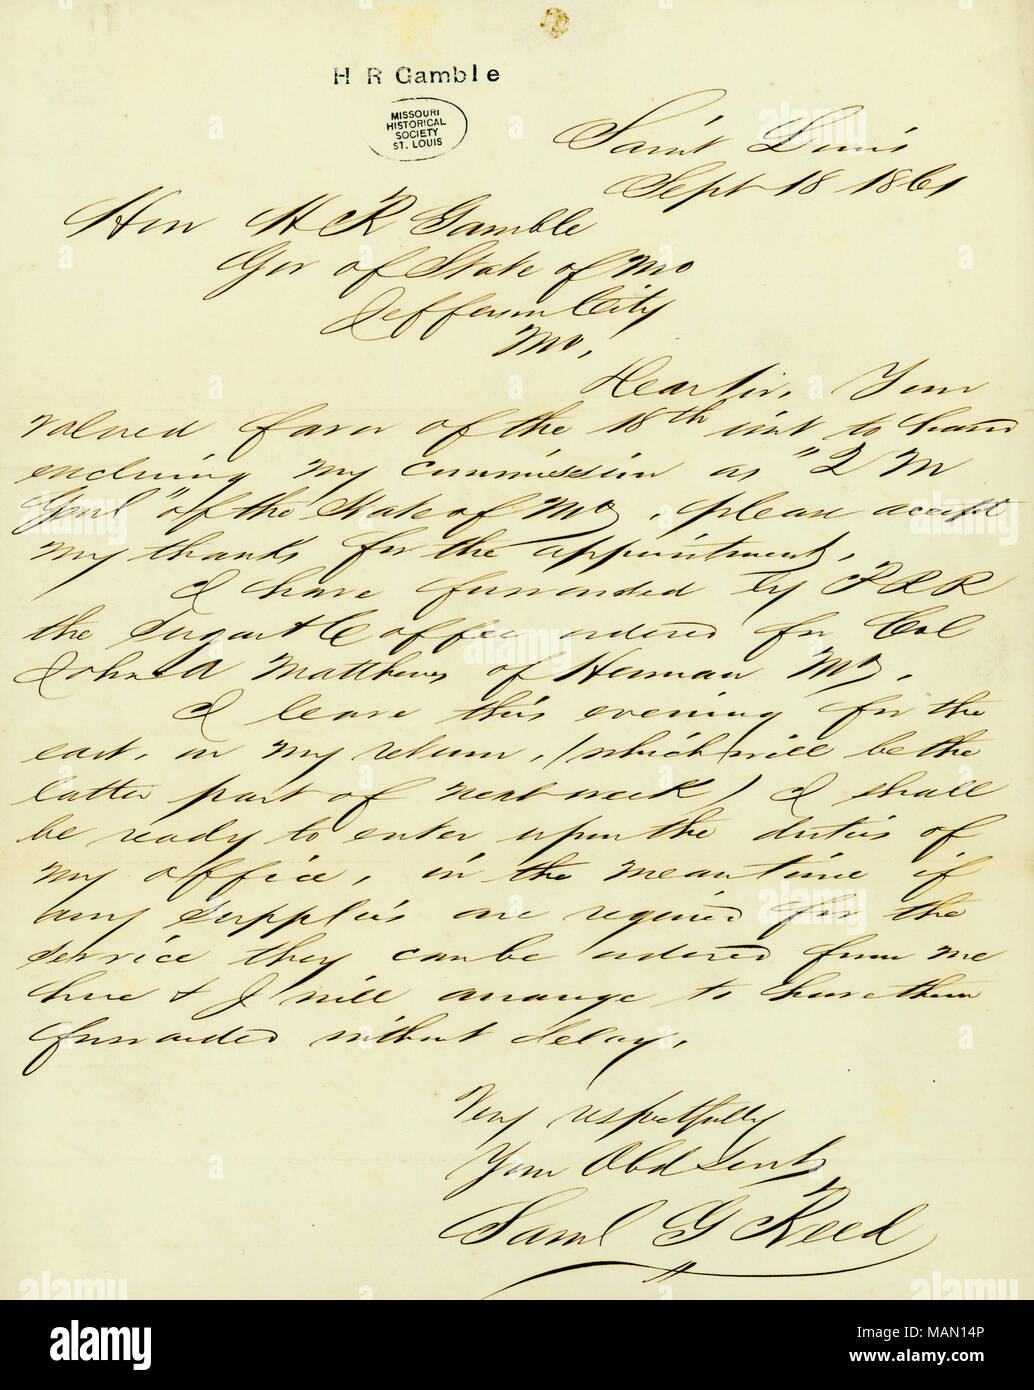 H R Gamble
MISSOURI
HISTORICAL
SOCIETY
ST. LOUIS
Saint Louis
Sept 18 1861
Hon H R Gamble
Gov of State of Mo
Jefferson City
Mo.
Dear Sir, Your
valued favor of the 18th inst to hand
enclosing my commission as "Q M
Genl" of the State of Mo, please accept
my thanks for the appointment.
I have forwarded by P.R.R
the Sugar & Coffee ordered for Col
John A Matthews of Herman Mo.
I leave this evening for the
east, on my return, (which will be the
latter part of next week) I shall
be ready to enter upon the duties of
my office, in the meantime if
any supplies are required for the
service they can be ordered from me
here & I will arrange to have them
forwarded without delay.
Very respectfully
Your Obd Servt
Saml G Reed
alamy
Image ID: MAN14P
www.alamy.com